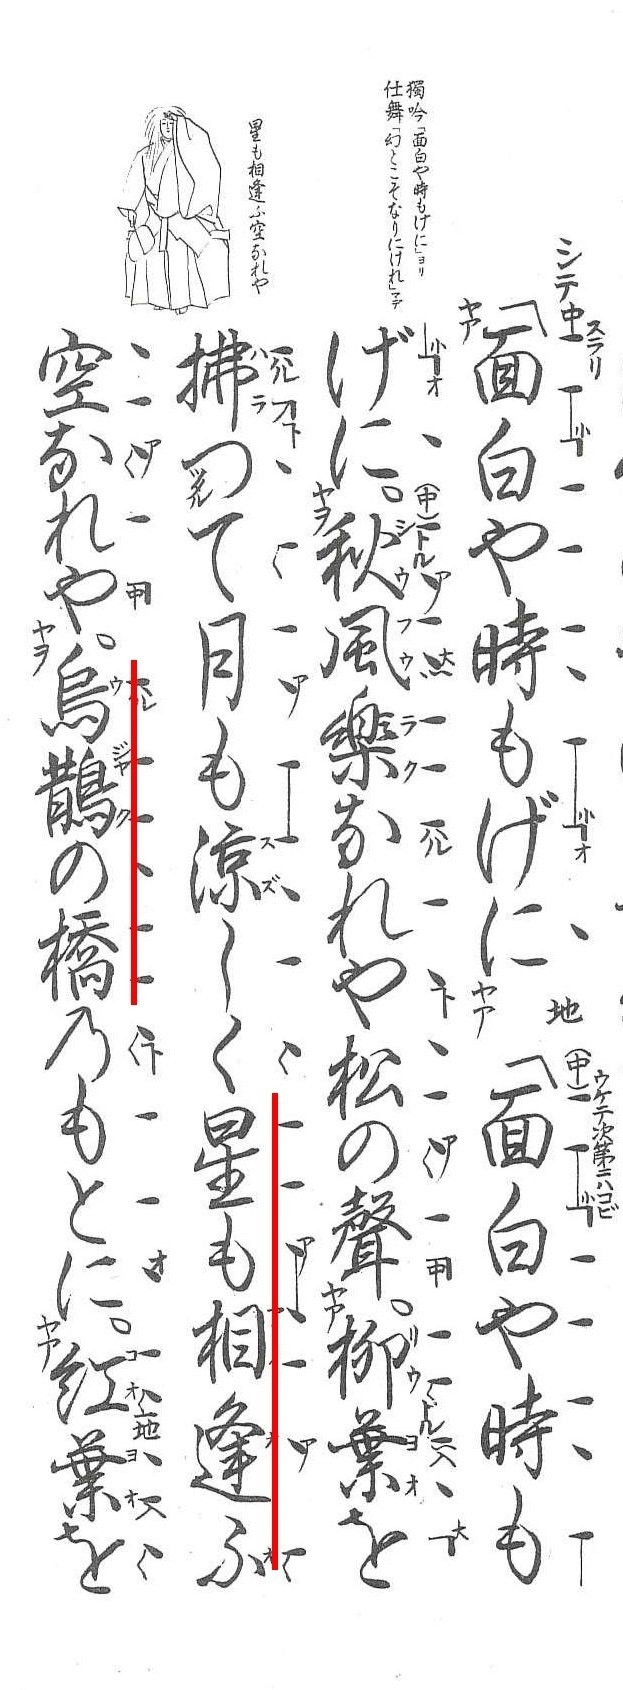 獨吟「面白や時もげに」ヨリ
仕舞「幻とこそなりにけれ」マデ
星も相逢ふ空なれや
シテ中 スラリ
「面白や時もげに
地
(中) ウケテ次第ニハコビ
「面白や時も
げに。秋風樂なれや松の聲。柳葉を
拂つて月も涼しく星も相逢ふ
空なれや。烏鵲の橋乃もとに。紅葉を